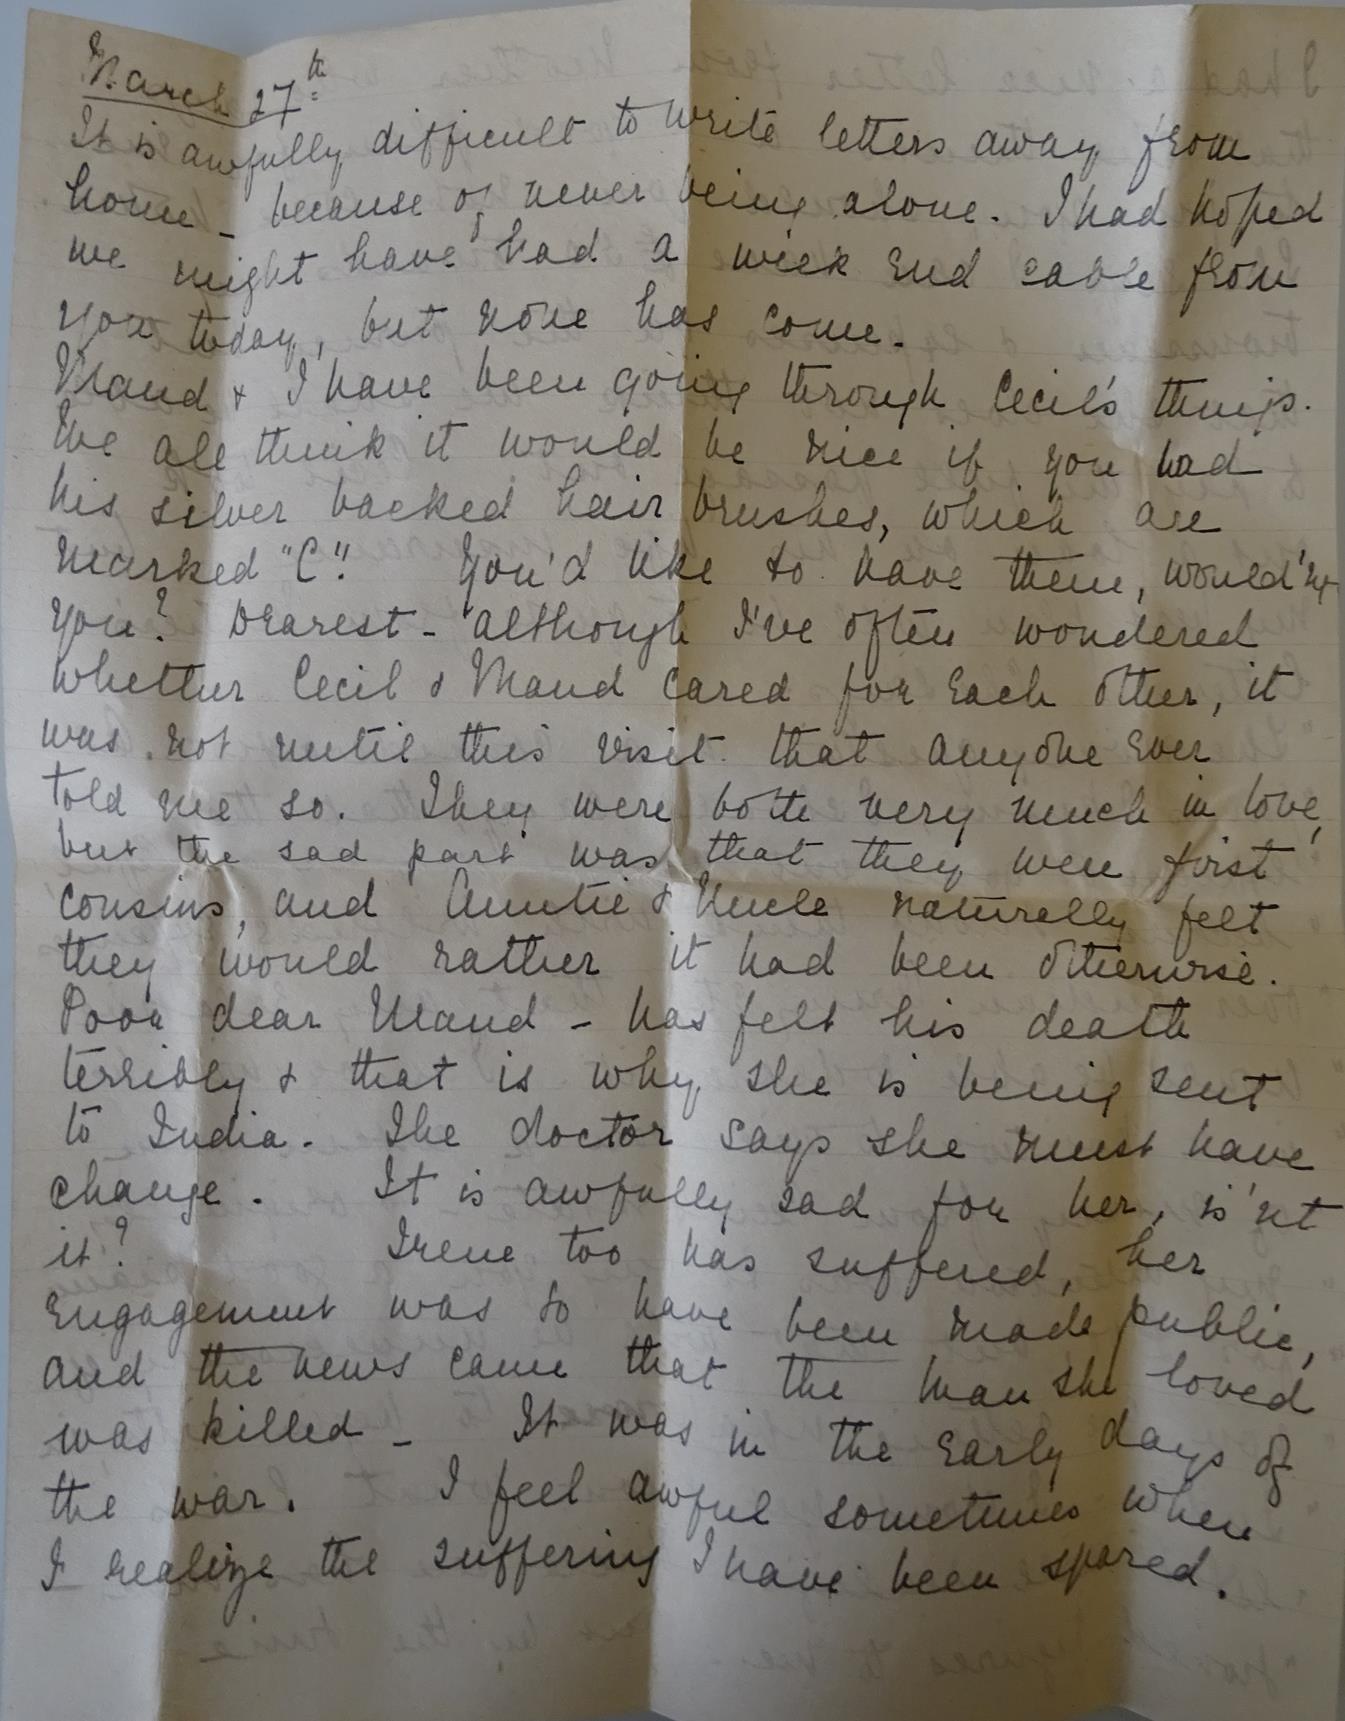 March 27th
It is awfully difficult to write letters away from
home - because of never being alone. I had hoped
we might have had a week end cable from
you today, but none has come.
Maud & I have been going through Cecil's things.
We all think it would be nice if you had
his silver backed hair brushes, which are
marked "C". You'd like to have them, would'nt
you? Dearest - although I've often wondered
whether Cecil & Maud cared for each other, it
was not until this visit that anyone ever
told me so. They were both very much in love,
but the sad part was that they were first
cousins, and Auntie & Uncle naturally felt
they would rather it had been otherwise.
Poor dear Maud - has felt his death
terribly & that is why she is being sent
to India. The doctor says she must have
change. It is awfully sad for her, is'nt
it? Irene too has suffered, her
engagement was to have been made public,
and the news came that the man she loved
was killed - It was in the early days of
the war. I feel awful sometimes when
I realize the suffering I have been spared.